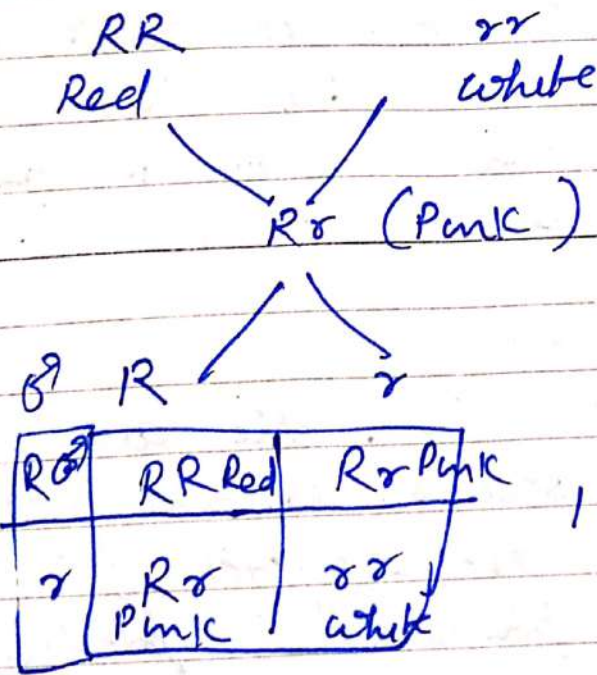 RR rr
Red white
Rr (Pink)
♂ R r
R♂ RR Red Rr Pink
r Rr rr
Pink white